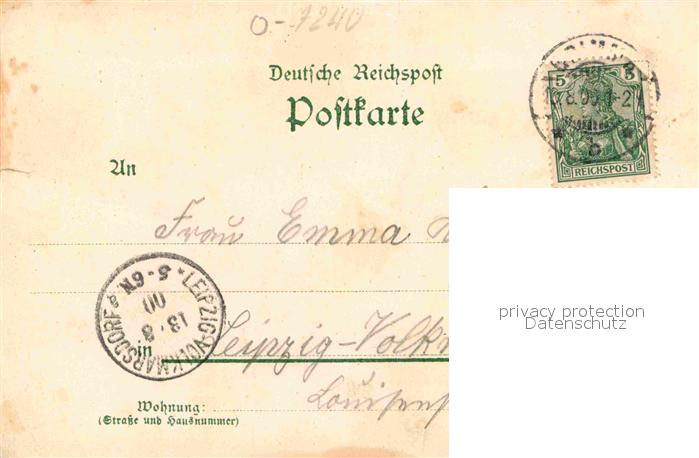 O-7240
Deutsche Reichspost
Postkarte
5 5
REICHSPOST
An
Frau Emma
privacy protection
Datenschutz
LEIPZIG-VOLKMARSDORF
5-6N.
13.8
00
in Leipzig-Volk
Wohnung:
(Straße und Hausnummer)